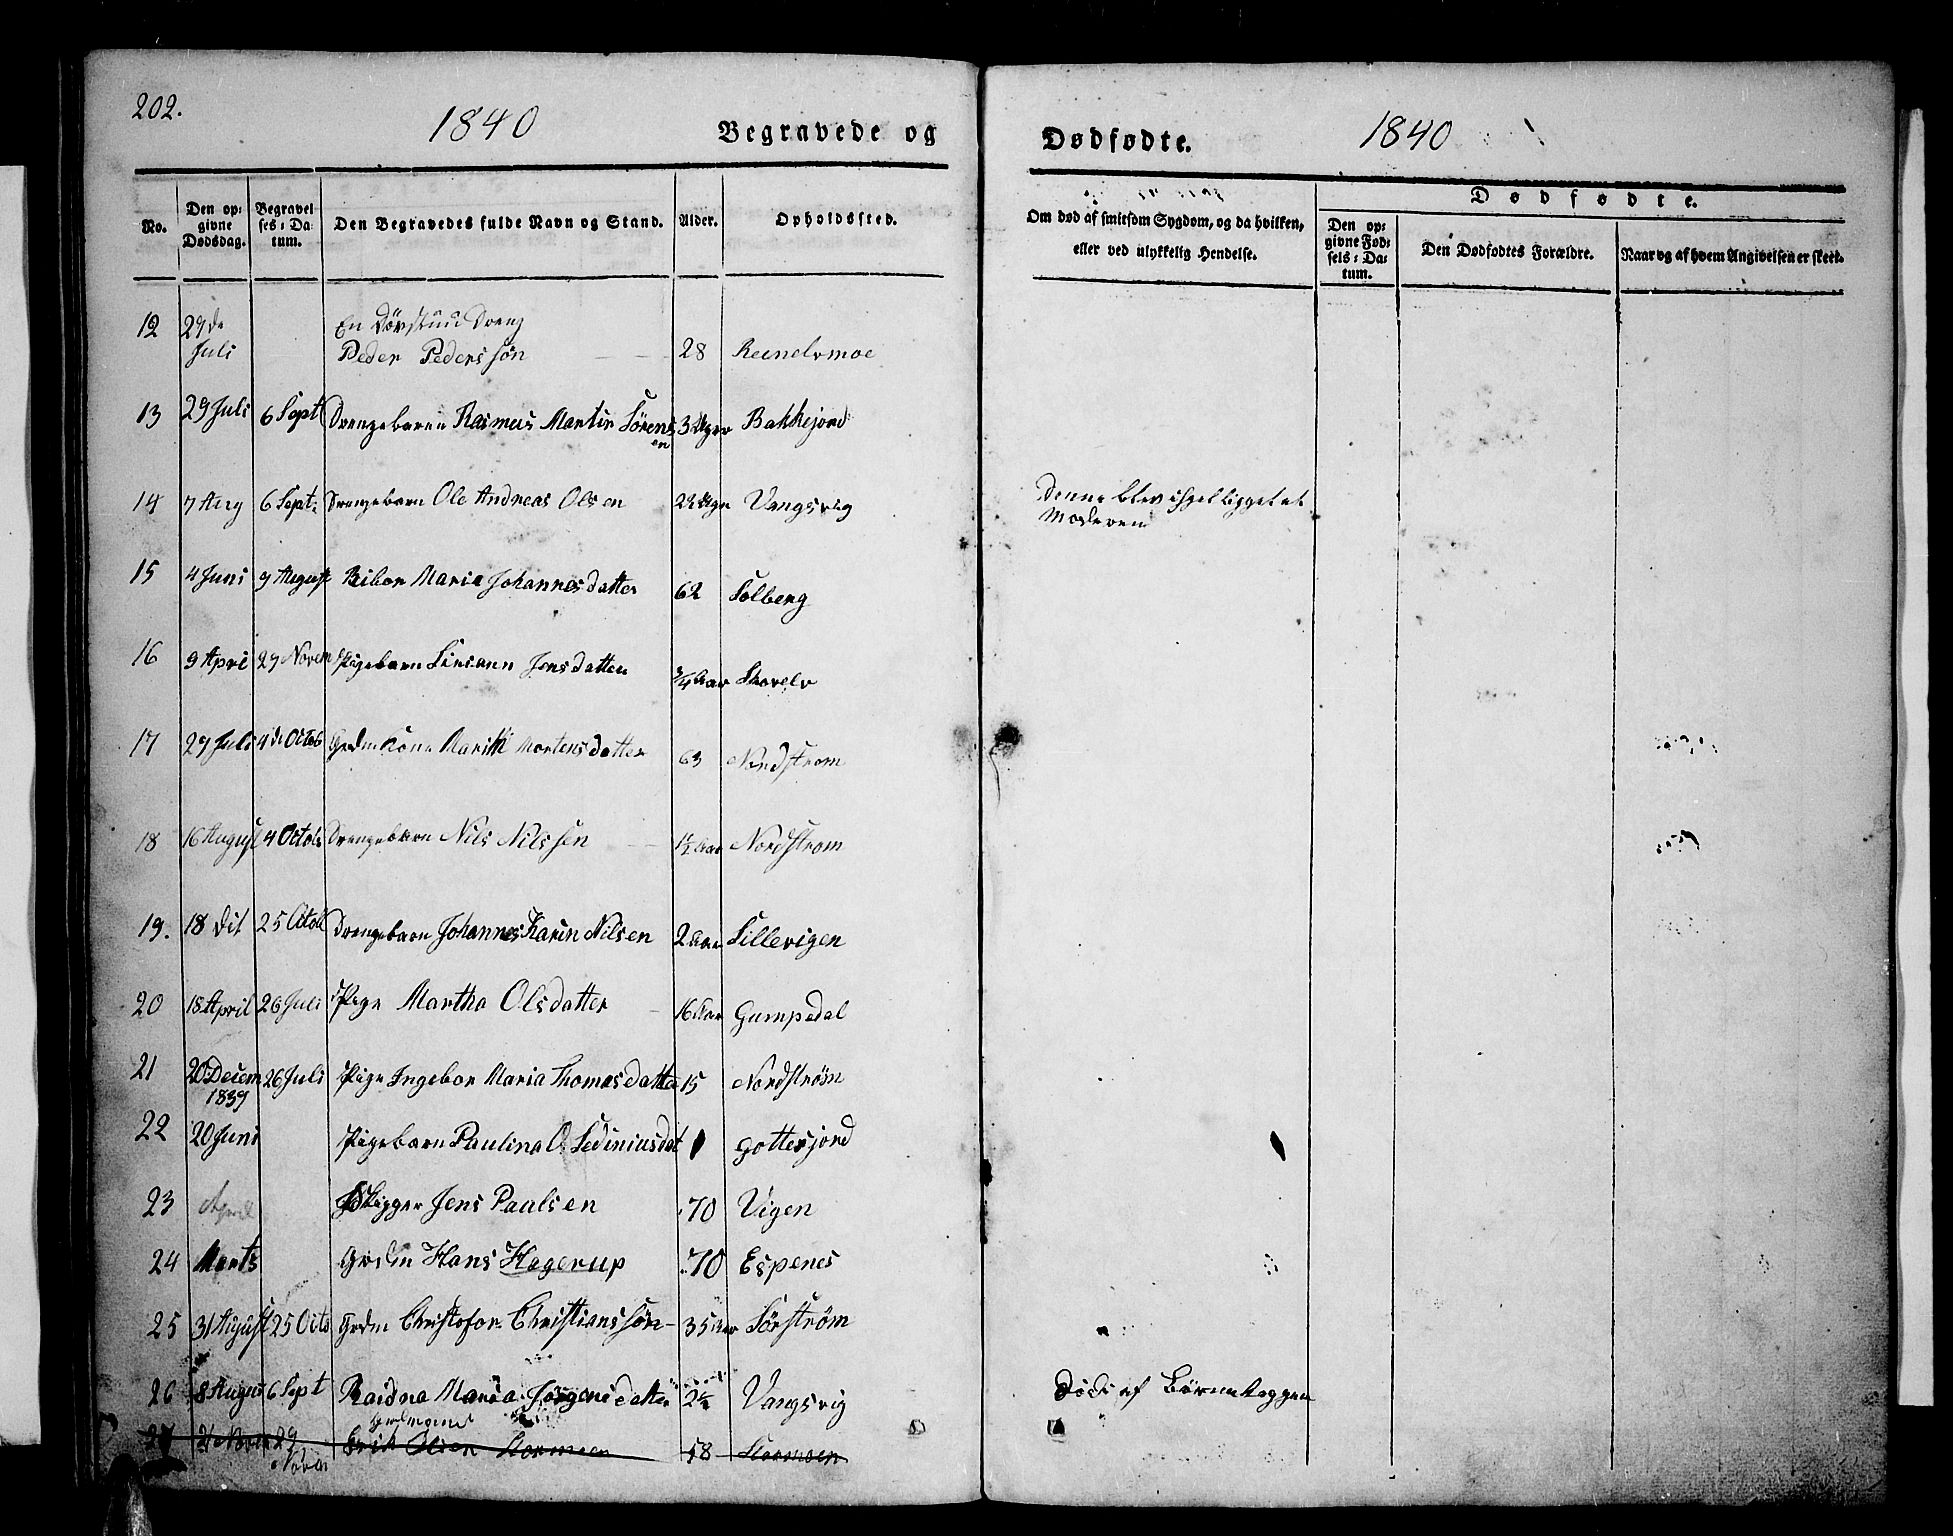 202.
1840
Begravede og
Dødfødte.
1840
No.
Den opgivne Dødsdag.
Begravelses-Datum.
Den Begravedes fulde Navn og Stand.
Alder.
Opholdssted.
Om død af smitsom Sygdom, og da hvilken, eller ved ulykkelig Hendelse.
Dødfødte.
Den opgivne Fødsels-Datum.
Den Dødfødtes Forældre.
Naar og af hvem Angivelsen er skeet.
12 29de Juli En Døvstum Dreng
Peder Pederssøn 28
13 29 Juli 6 Sept Drengebarn Rasmus Martin Sørensen 3 Bakkejord
14 7 Aug 6 Sept. Drengebarn Ole Andreas Olsen Vangsvig
Denne blev ihjel ligget af
Moderen
15 4 Juni 9 August Maria Johannesdatter 62 Solberg
16 9 Apri 29 Novem Pigebarn Jensdatter 3/4 Aar
17 29 Juli 4de Octob Marith Mortensdatter 63 Nordstrøm
18 16 August 4 Octob Drengebarn Nils Nilssen 1 1/2 Aar Nordstrøm
19. 18 dit 25 Octob Drengebarn Johannes Karin Nilsen 2 Aar Lillevigen
20 18 April 26 Juli Pige Martha Olsdatter 16 Aar Gumpedal
21 20 Decem 1839 26 Juli Pige Ingebor Maria Thomasdatter 15 Nordstrøm
22 20 Juni Pigebarn Paulina O. Sediniusdat 1 Gottesjord
23 April Jens Paulsen 70 Vigen
24 Marts Hans Hagerup 70 Espenes
25 31 August 25 Octo Christofor Christianssøn 35 Aar Sørstrøm
26 8 August 6 Sept Maria Jørgensdatter 2 1/2 Vangsvig
Døde af Børnekoppen
27 29 Novem Erik Olsen 58